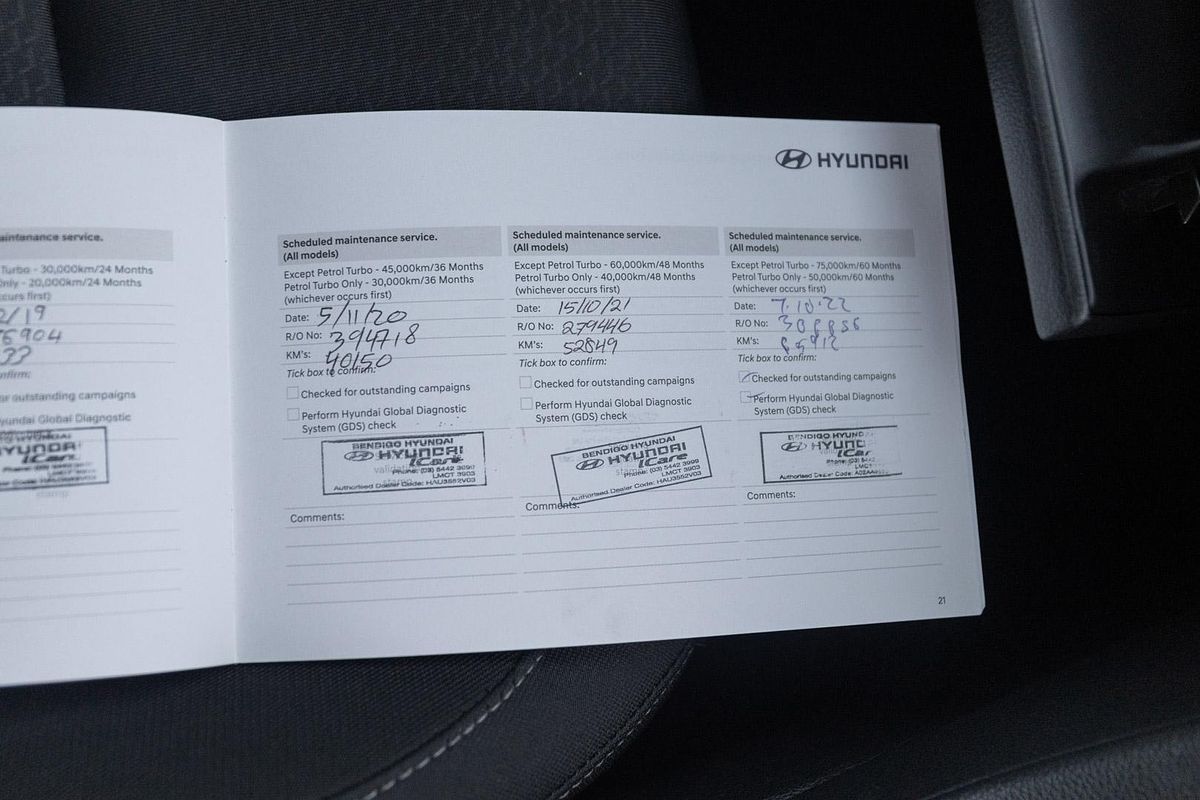 HYUNDAI
aintenance service.
Turbo - 30,000km/24 Months
Only - 20,000km/24 Months
ccurs first)
2/19
76904
33
onfirm:
or outstanding campaigns
yundai Global Diagnostic
HYUNDAI
iCare
stamp
Scheduled maintenance service.
(All models)
Except Petrol Turbo - 45,000km/36 Months
Petrol Turbo Only - 30,000km/36 Months
(whichever occurs first)
Date: 5/11/20
R/O No: 394718
KM's: 40150
Tick box to confirm:
Checked for outstanding campaigns
Perform Hyundai Global Diagnostic
System (GDS) check
BENDIGO HYUNDAI
HYUNDAI
iCare
Phone: (03) 5442 3999
LMCT 3903
Authorised Dealer Code: HAU3552V03
Comments:
Scheduled maintenance service.
(All models)
Except Petrol Turbo - 60,000km/48 Months
Petrol Turbo Only - 40,000km/48 Months
(whichever occurs first)
Date: 15/10/21
R/O No: 279446
KM's: 52849
Tick box to confirm:
Checked for outstanding campaigns
Perform Hyundai Global Diagnostic
System (GDS) check
BENDIGO HYUNDAI
HYUNDAI
iCare
Phone: (03) 5442 3999
LMCT 3903
Authorised Dealer Code: HAU3552V03
Comments:
Scheduled maintenance service.
(All models)
Except Petrol Turbo - 75,000km/60 Months
Petrol Turbo Only - 50,000km/60 Months
(whichever occurs first)
Date: 7.10.22
R/O No:
KM's:
Tick box to confirm:
Checked for outstanding campaigns
Perform Hyundai Global Diagnostic
System (GDS) check
BENDIGO HYUND
HYUND
iCar
Phone: (03)
LMCT
Authorised Dealer Code:
Comments:
21